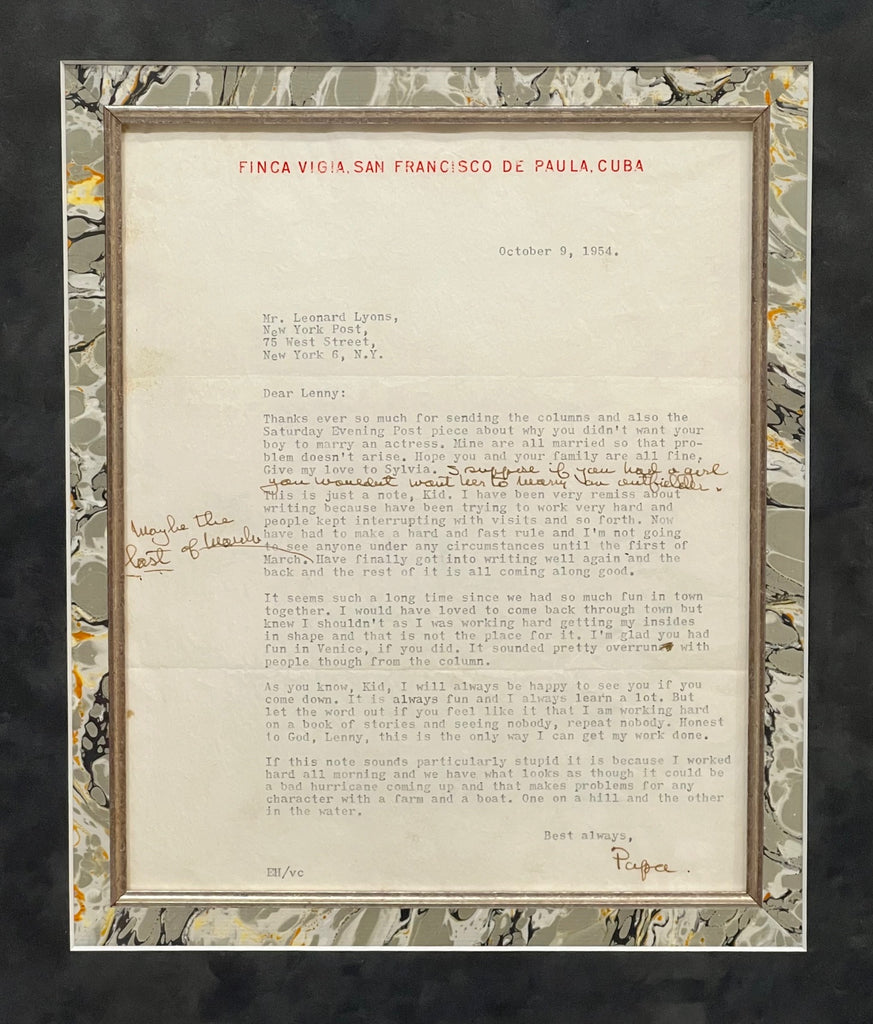 FINCA VIGIA, SAN FRANCISCO DE PAULA, CUBA
October 9, 1954.
Mr. Leonard Lyons,
New York Post,
75 West Street,
New York 6, N.Y.
Dear Lenny:
Thanks ever so much for sending the columns and also the
Saturday Evening Post piece about why you didn't want your
boy to marry an actress. Mine are all married so that pro-
blem doesn't arise. Hope you and your family are all fine.
Give my love to Sylvia. I suppose if you had a girl
you wouldn't want her to marry an outfielder.
This is just a note, Kid. I have been very remiss about
writing because have been trying to work very hard and
people kept interrupting with visits and so forth. Now
have had to make a hard and fast rule and I'm not going
to see anyone under any circumstances until the first of
Maybe the
last of March
March. Have finally got into writing well again and the
back and the rest of it is all coming along good.
It seems such a long time since we had so much fun in town
together. I would have loved to come back through town but
knew I shouldn't as I was working hard getting my insides
in shape and that is not the place for it. I'm glad you had
fun in Venice, if you did. It sounded pretty overrun with
people though from the column.
As you know, Kid, I will always be happy to see you if you
come down. It is always fun and I always learn a lot. But
let the word out if you feel like it that I am working hard
on a book of stories and seeing nobody, repeat nobody. Honest
to God, Lenny, this is the only way I can get my work done.
If this note sounds particularly stupid it is because I worked
hard all morning and we have what looks as though it could be
a bad hurricane coming up and that makes problems for any
character with a farm and a boat. One on a hill and the other
in the water.
Best always,
Papa.
EH/vc